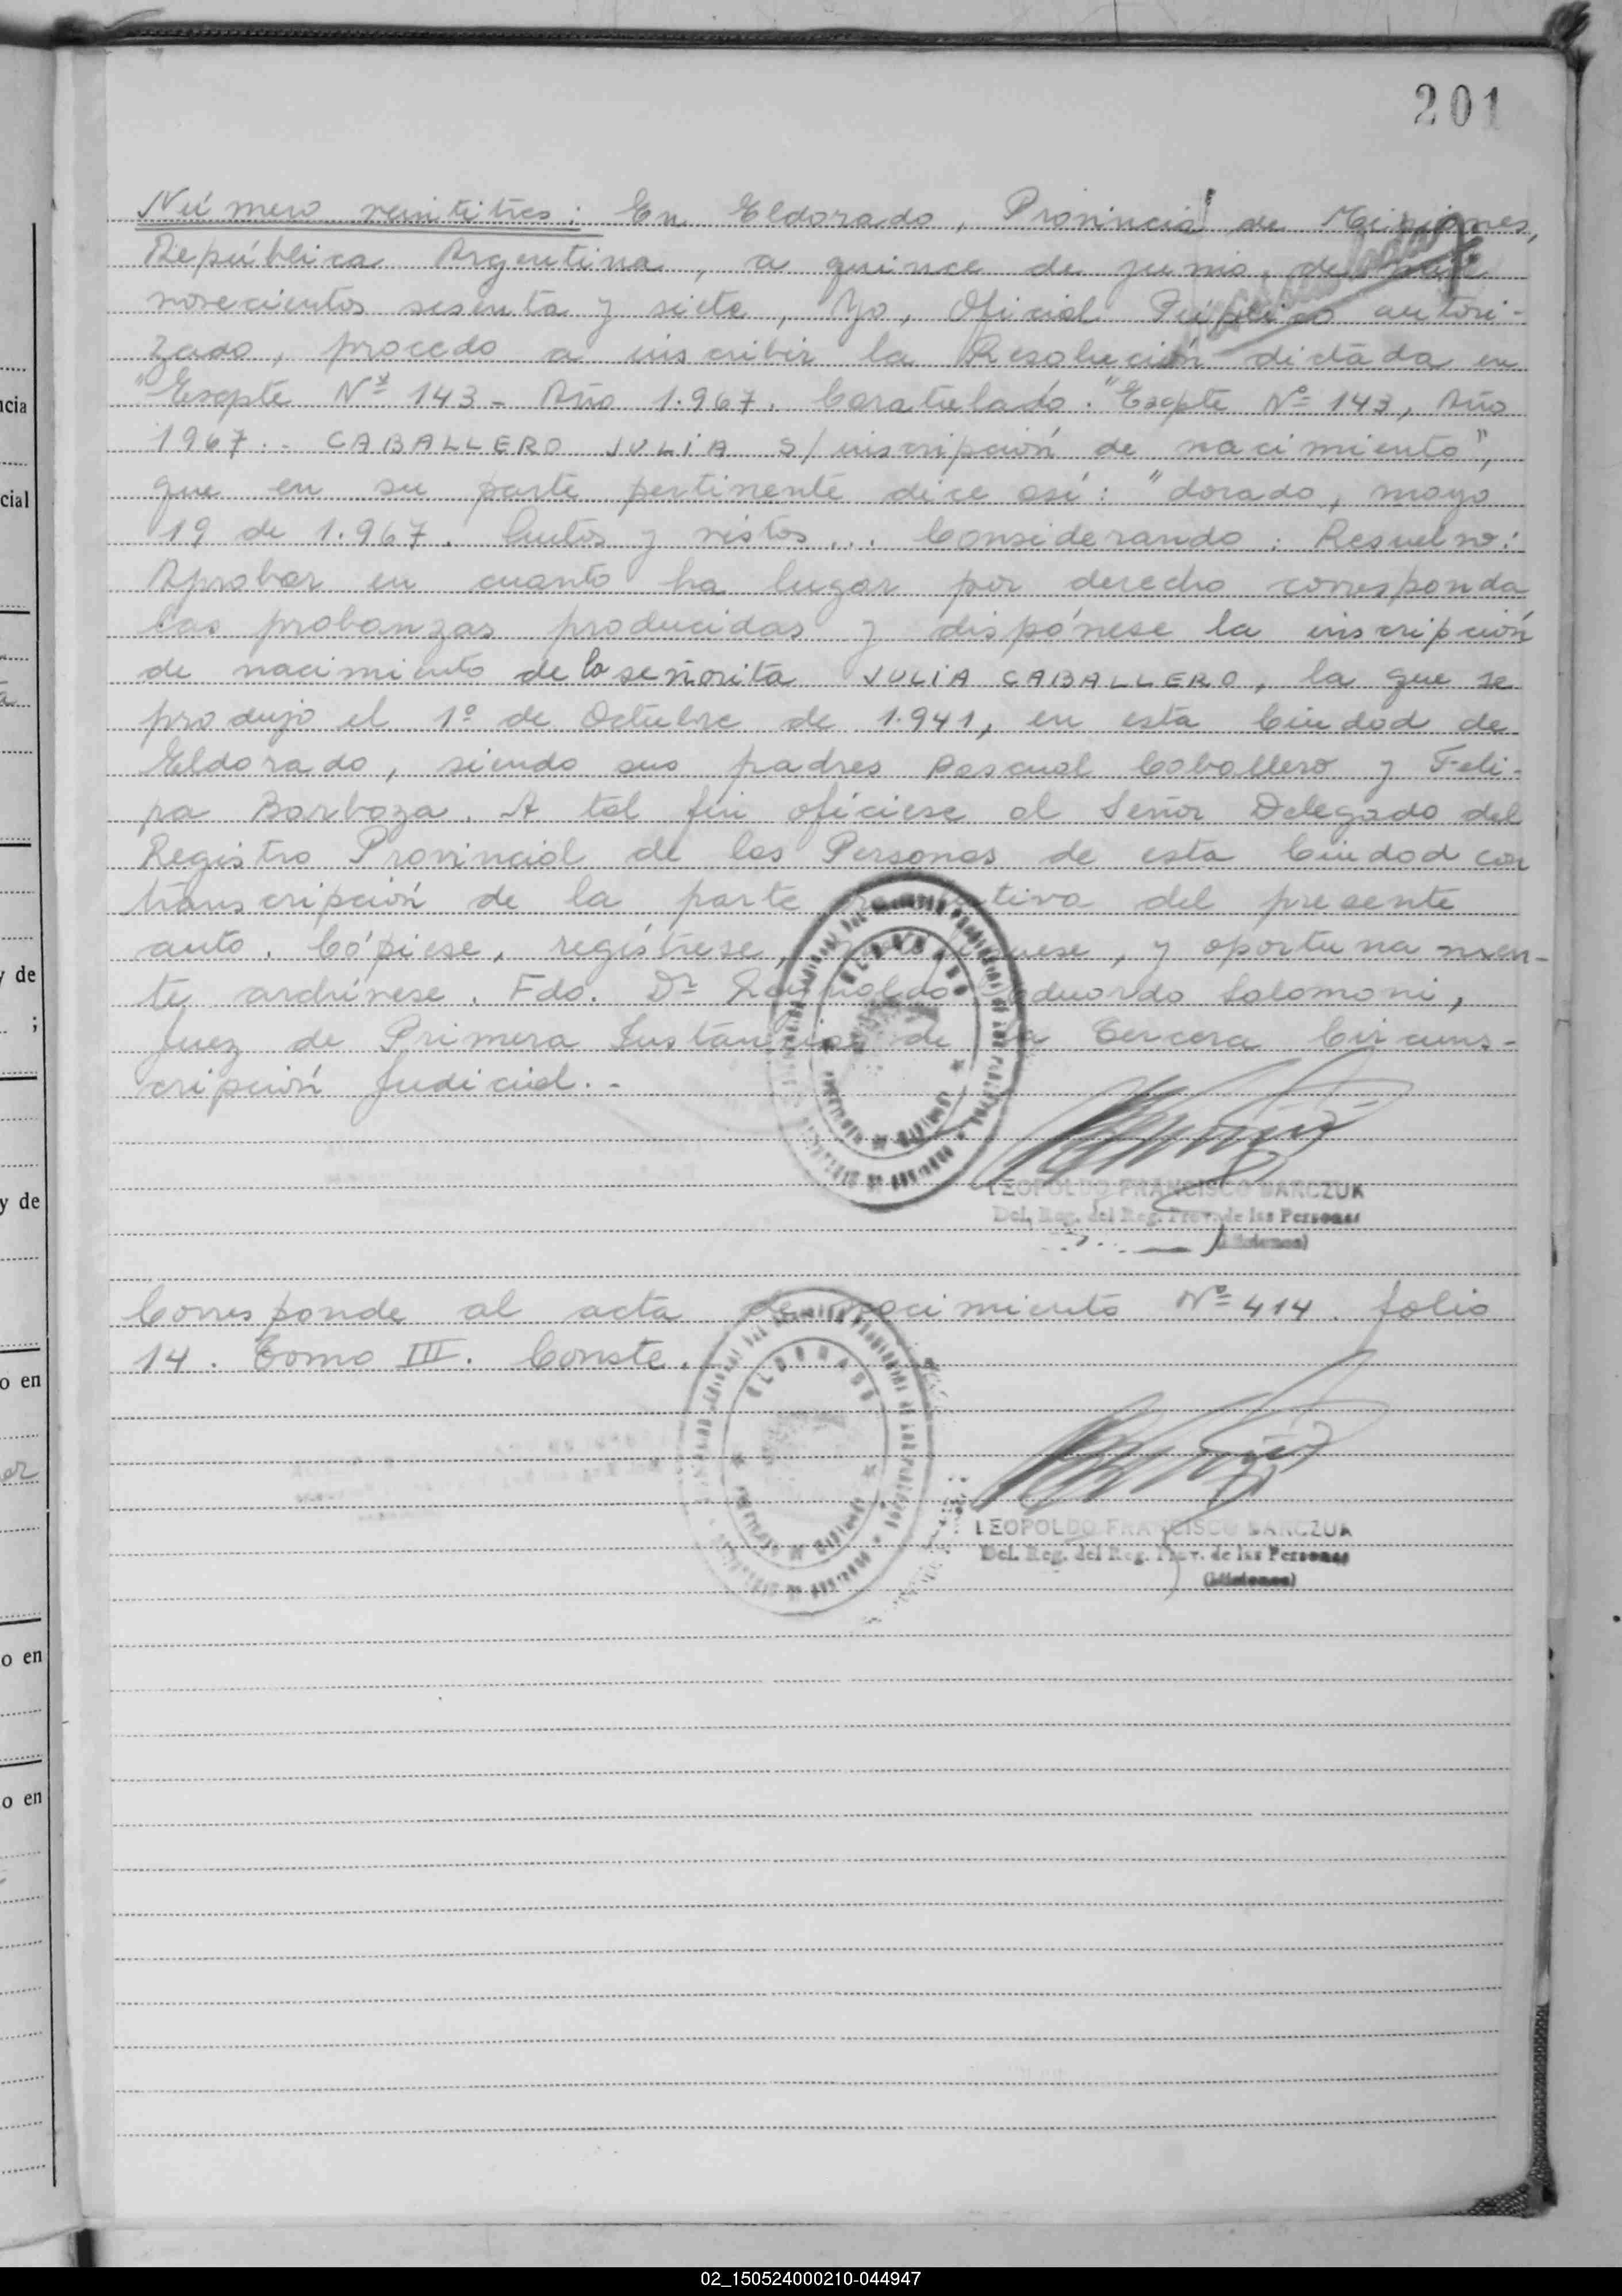 201
Número veintitres: En Eldorado, Provincia de Misiones,
República Argentina, a quince de junio, de mil
novecientos sesenta y siete, Yo, Oficial Público autori-
zado, procedo a inscribir la Resolución dictada en
"Expte Nº 143 - Año 1.967. Caratulado. "Expte Nº 143, Año
1967.- CABALLERO JULIA S/ inscripción de nacimiento",
que en su parte pertinente dice así: "dorado, mayo
19 de 1.967. Autos y vistos... Considerando: Resuelvo:
Aprobar en cuanto ha lugar por derecho corresponda
las probanzas producidas y dispónese la inscripción
de nacimiento de la señorita JULIA CABALLERO, la que se
produjo el 1º de Octubre de 1.941, en esta Ciudad de
Eldorado, siendo sus padres Pascual Caballero y Feli-
pa Barboza. A tal fin ofíciese al Señor Delegado del
Registro Provincial de las Personas de esta Ciudad con
transcripción de la parte resolutiva del presente
auto. Cópiese, regístrese, notifíquese, y oportunamen-
te archívese. Fdo. Dr Reynoldo Eduardo Solomoni,
Juez de Primera Instancia de la Tercera Circuns-
cripción Judicial.-
LEOPOLDO FRANCISCO BARCZUK
Del. Reg. del Reg. Prov. de las Personas
(Misiones)
Corresponde al acta de nacimiento Nº 414. folio
14. Tomo III. Conste.
ELDORADO
LEOPOLDO FRANCISCO BARCZUK
Del. Reg. del Reg. Prov. de las Personas
(Misiones)
ncia
cial
y de
;
y de
o en
o en
o en
02_150524000210-044947